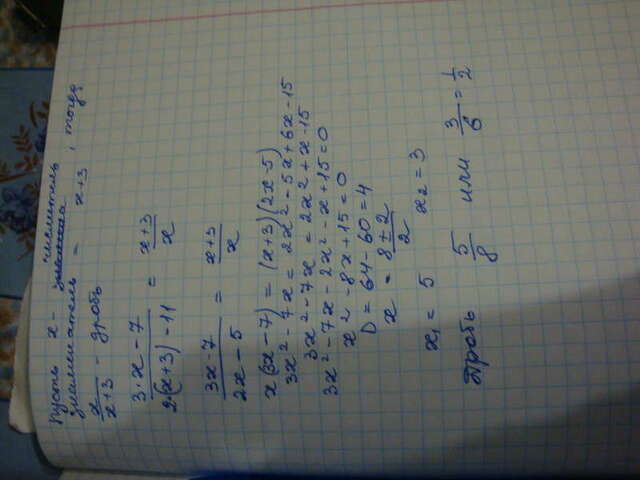 Пусть x - числитель
знаменатель = x+3, тогда
x/(x+3) - дробь
(3·x-7)/(2·(x+3)-11) = (x+3)/x
(3x-7)/(2x-5) = (x+3)/x
x(3x-7) = (x+3)(2x-5)
3x²-7x = 2x²-5x+6x-15
3x²-7x = 2x²+x-15
3x²-7x-2x²-x+15=0
x²-8x+15=0
D=64-60=4
x = (8±2)/2
x₁=5 x₂=3
Дробь 5/8 или 3/6=1/2